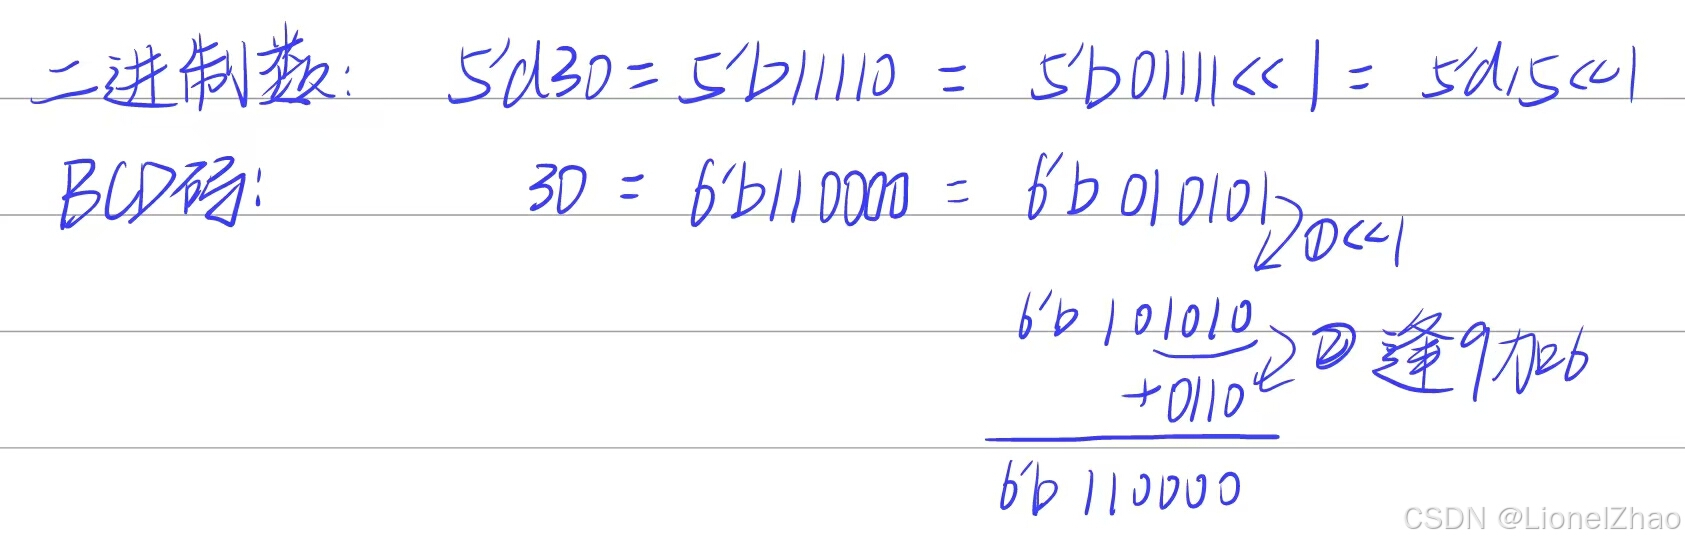 二进制数: 5'd30 = 5'b11110 = 5'b01111<<1 = 5'd15<<1
BCD码: 30 = 6'b110000 = 6'b010101
①<<1
6'b101010
+0110
② 逢9加6
6'b110000
CSDN @LionelZhao